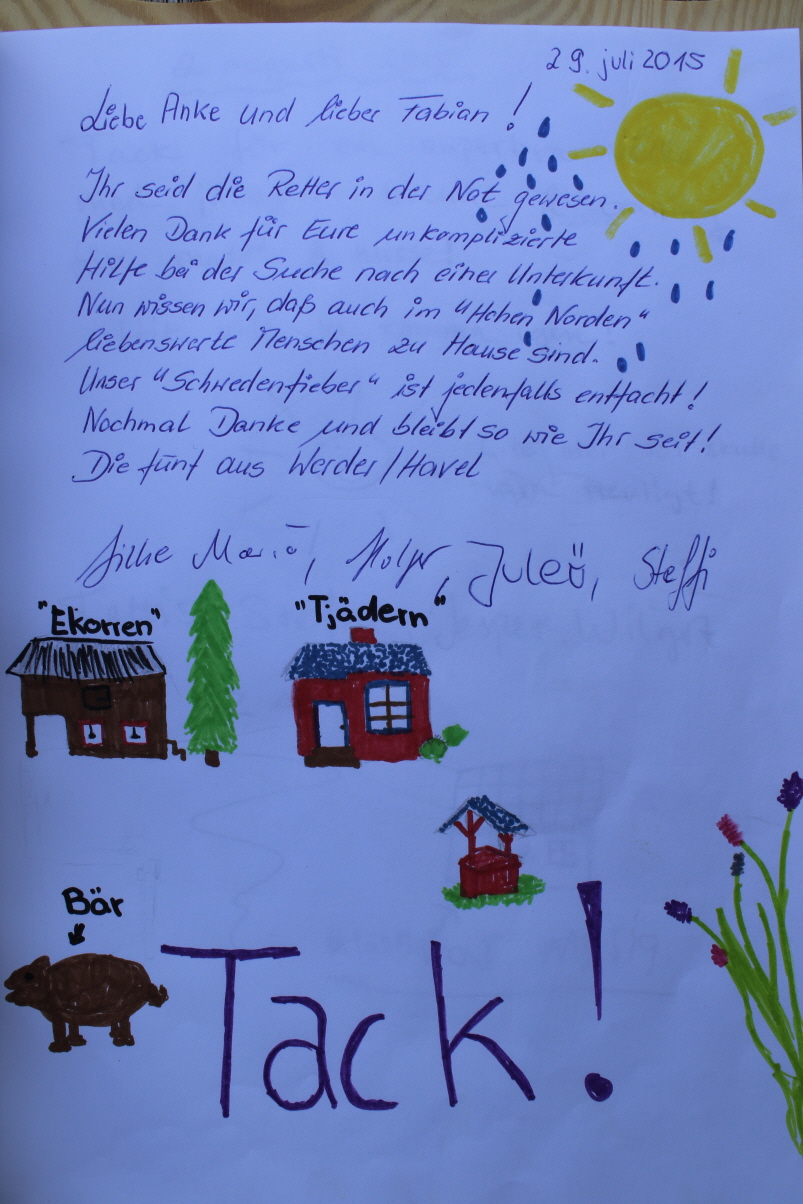 29. juli 2015
Liebe Anke und lieber Fabian!
Ihr seid die Retter in der Not gewesen.
Vielen Dank für Eure unkomplizierte
Hilfe bei der Suche nach einer Unterkunft.
Nun wissen wir, daß auch im "Hohen Norden"
liebenswerte Menschen zu Hause sind.
Unser "Schwedenfieber" ist jedenfalls entfacht!
Nochmal Danke und bleibt so wie Ihr seit!
Die fünf aus Werder/Havel
Silke Mario, Holger, Steffi
"Ekorren" "Tjädern"
Bär
Tack!